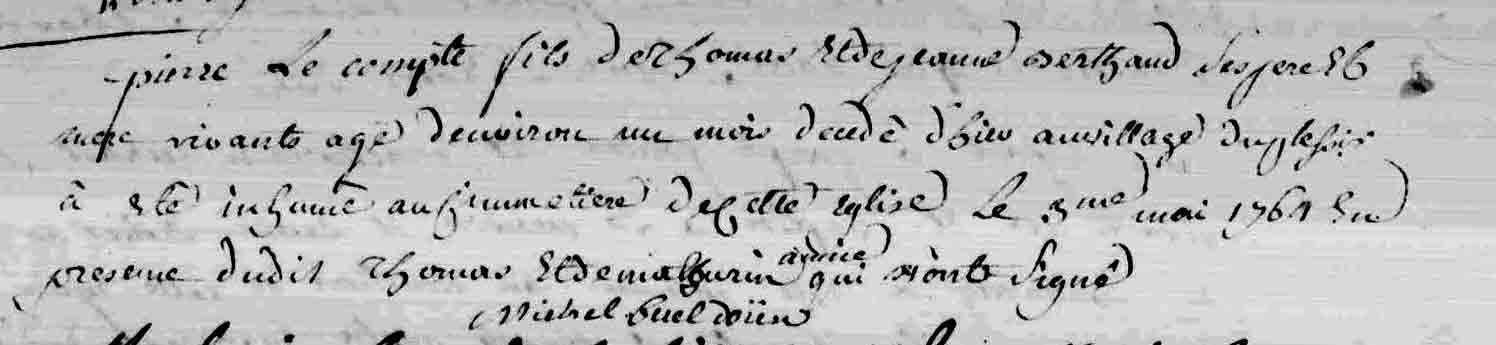 pierre Le compte fils de Thomas Et de jeanne berthaud ses pere Et
mere vivants agé denviron un mois decedé d'hier au village duplessis
à été inhumé au Cimmetiere de cette Eglise Le 3me mai 1764 En
presence dudit Thomas Et de mathurin qui n'ont signé
Michel